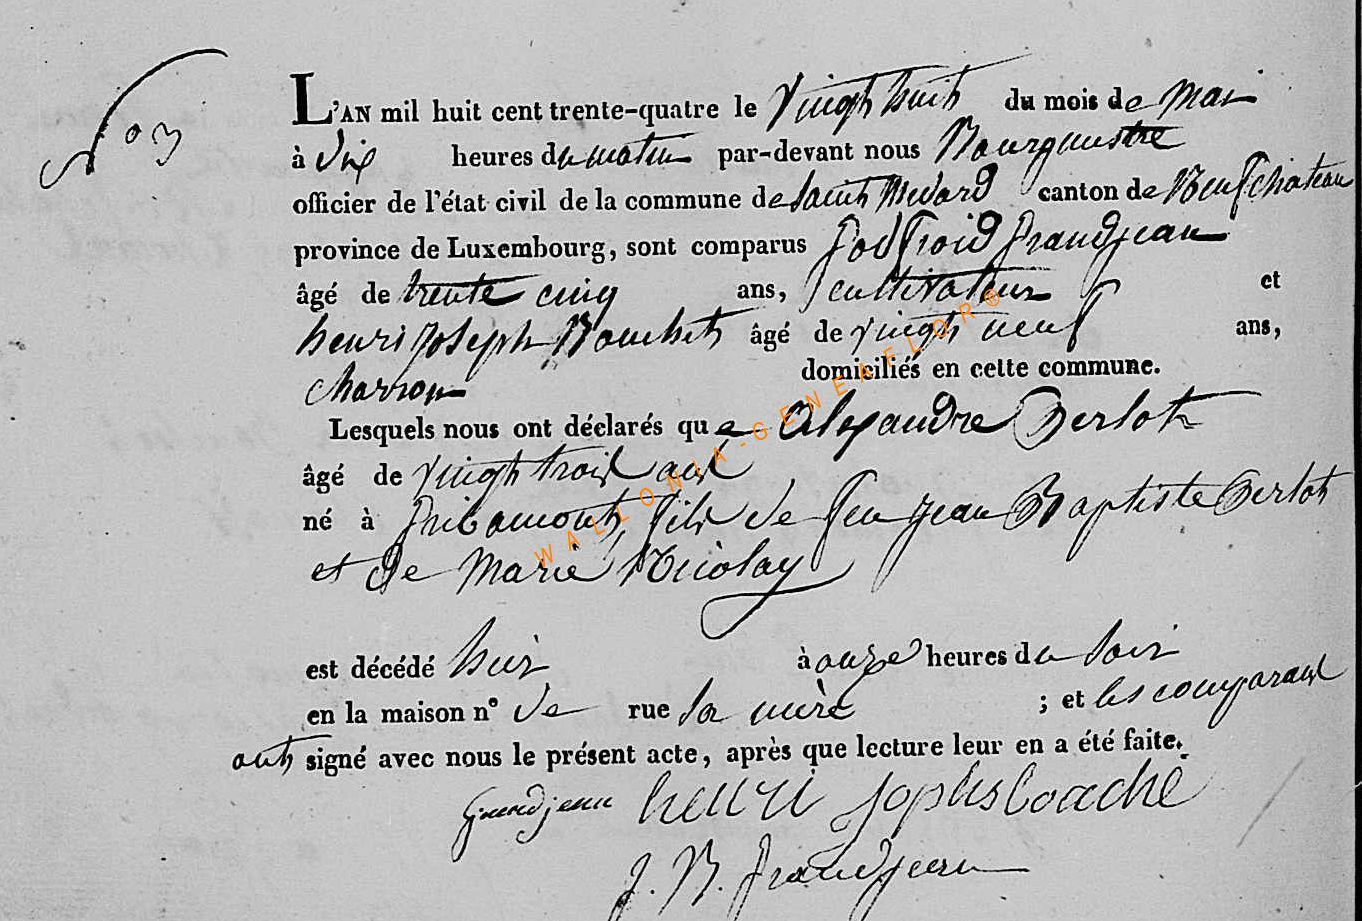 N° 3
L'AN mil huit cent trente-quatre le vingt huit du mois de mai
à dix heures du matin par-devant nous Bourguestre
officier de l'état civil de la commune de Saint Medard canton de Neufchateau
province de Luxembourg, sont comparus Godfroid Grandjean
âgé de trente cinq ans, cultivateur et
henri joseph Bouchet âgé de vingt neuf ans,
charron domiciliés en cette commune.
Lesquels nous ont déclarés que Alexandre Berlot
âgé de vingt trois ans
né à Gribomont fils de feu jean Baptiste Berlot
et de Marie Nicolay
est décédé hier à onze heures du soir
en la maison n° de rue sa mère ; et les comparans
ont signé avec nous le présent acte, après que lecture leur en a été faite.
Grandjean henri
J. B. Grandjean
WALLONIA-GENEAFLOR®